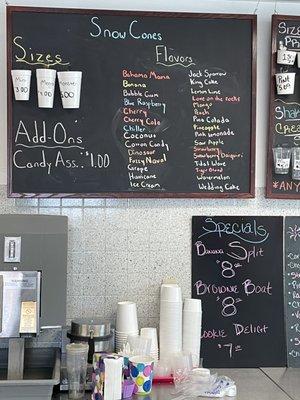 Snow Cones
Sizes
Flavors
Mini
3.00
Menor
4.00
Monster
5.00
Add-Ons
Candy Ass. $1.00
Bahama Mama
Banana
Bubble Gum
Blue Raspberry
Cherry
Cherry Cola
Chiller
Coconut
Cotton Candy
Dinosaur
Fuzzy Naval
Grape
Hurricane
Ice Cream
Jack Sparrow
King Cake
Lemon Lime
Love on the rocks
Mango
Peach
Pina Colada
Pineapple
Pink lemonade
Sour Apple
Strawberry
Strawberry Daiquiri
Tidal Wave
Tiger Blood
Watermelon
Wedding Cake
Specials
Banana Split
$8
Brownie Boat
$8
Cookie Delight
$7